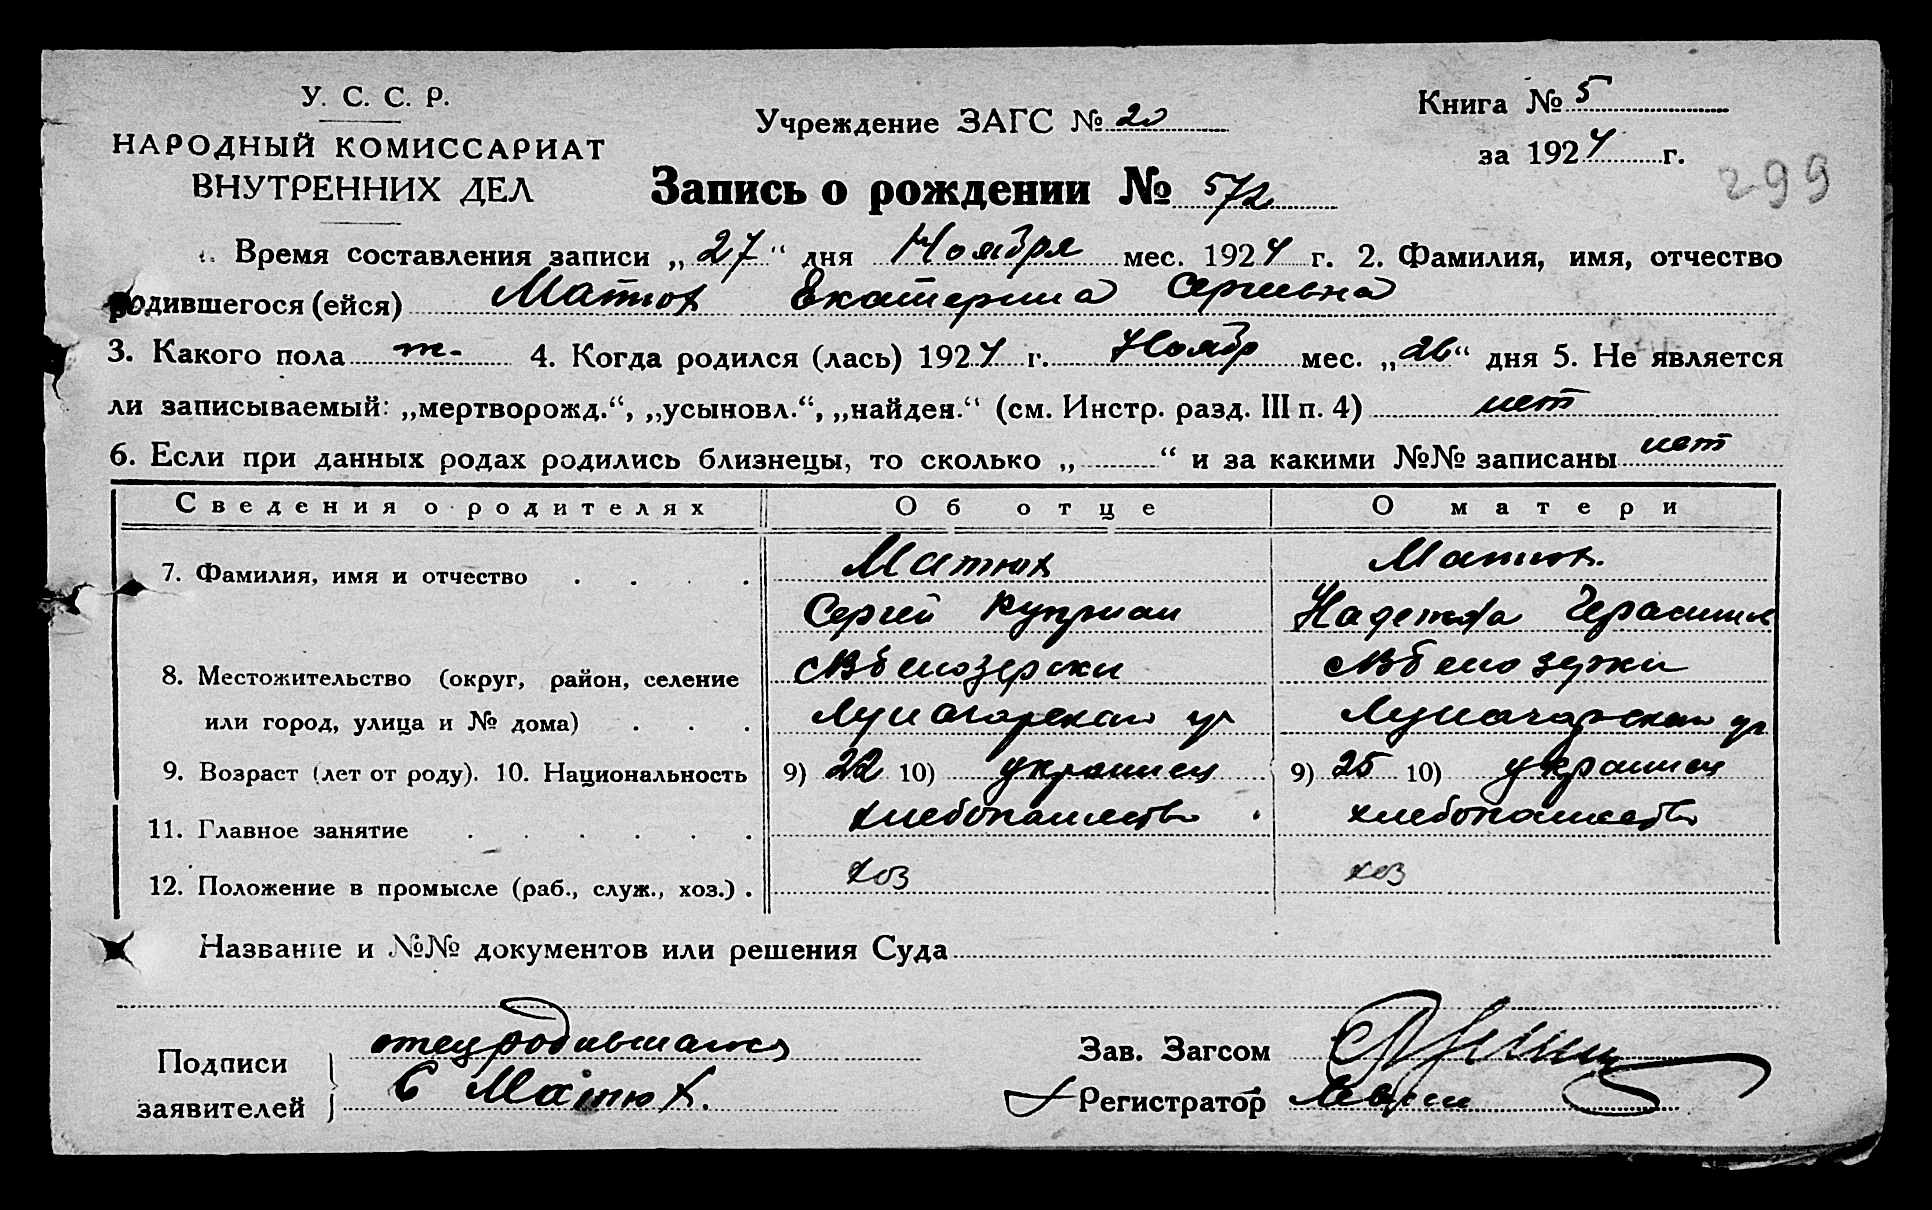 У. С. С. Р.
НАРОДНЫЙ КОМИССАРИАТ
ВНУТРЕННИХ ДЕЛ
Учреждение ЗАГС № 20
Книга № 5
за 1924 г.
299
Запись о рождении № 572
1. Время составления записи „27“ дня Ноября мес. 1924 г. 2. Фамилия, имя, отчество
родившегося (ейся) Матюх Екатерина Сергиевна
3. Какого пола ж. 4. Когда родился (лась) 1924 г. Ноябр мес. „26“ дня 5. Не является
ли записываемый: „мертворожд.“, „усыновл.“, „найден.“ (см. Инстр. разд. III п. 4) нет
6. Если при данных родах родились близнецы, то сколько „ “ и за какими №№ записаны нет
Сведения о родителях Об отце О матери
7. Фамилия, имя и отчество Матюх Матюх.
Сергей Куприан Надежда Герасимов
8. Местожительство (округ, район, селение
или город, улица и № дома) Луначарская ул Луначарская ул
9. Возраст (лет от роду). 10. Национальность 9) 22 10) украинец 9) 25 10) украинец
11. Главное занятие хлебопашество хлебопашество
12. Положение в промысле (раб., служ., хоз.) хоз хоз
Название и №№ документов или решения Суда
Подписи
заявителей
отец родившагося
С Матюх.
Зав. Загсом
Регистратор